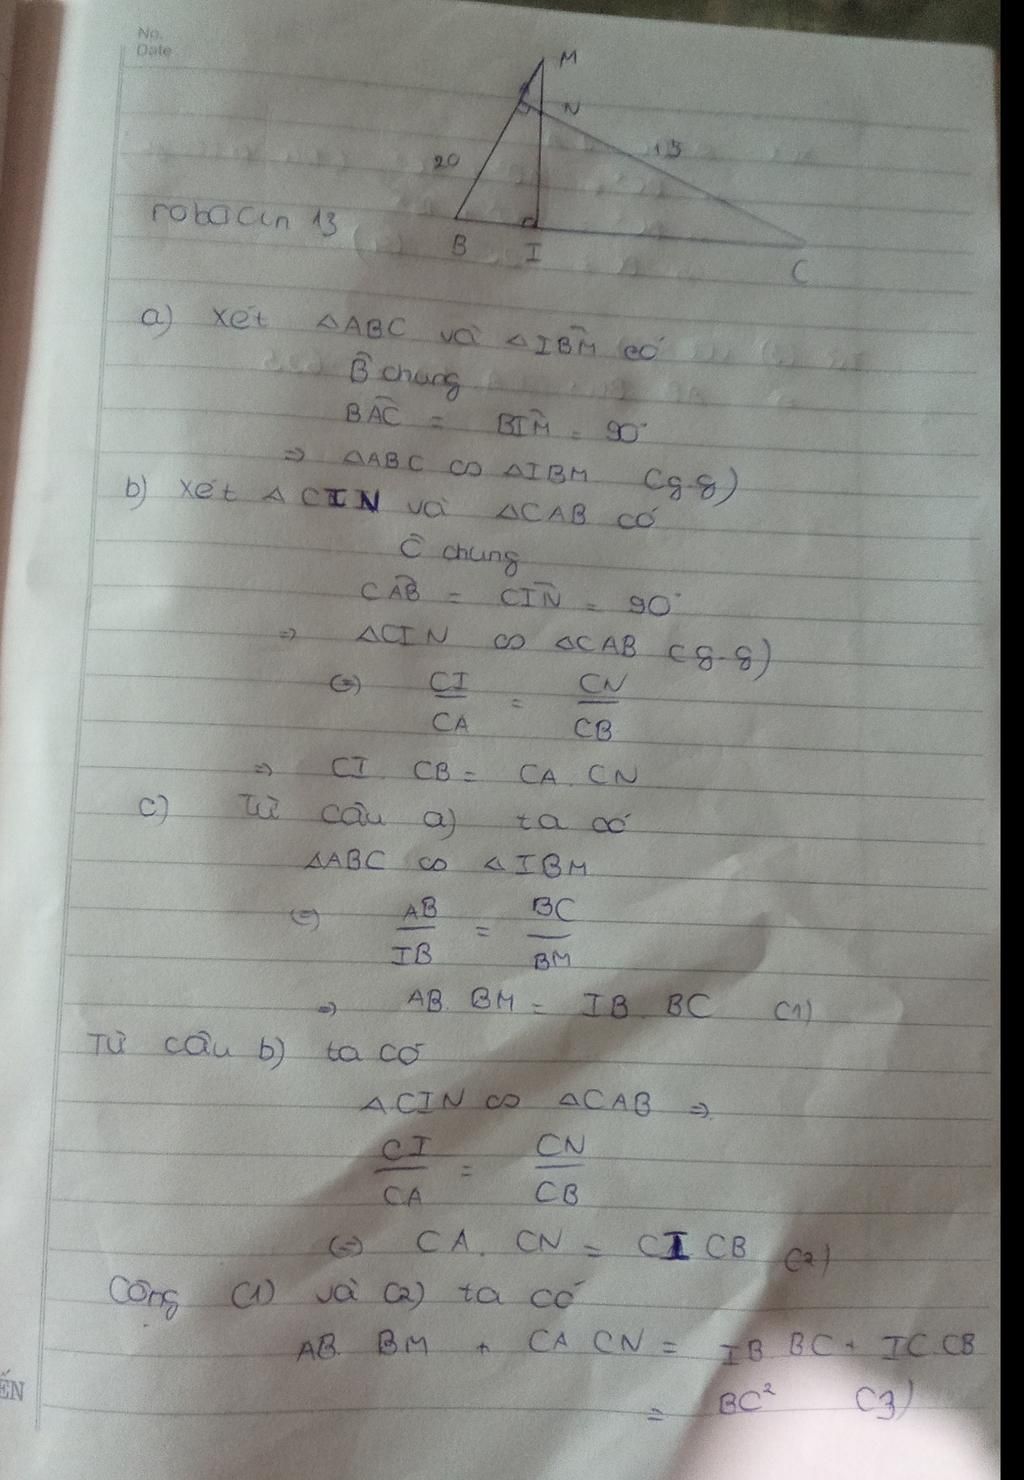 No.
Date
M
N
20
15
robocin 13
B
I
C
a) xét △ABC và △IBM có
B̂ chung
BÂC = BÎM = 90°
⇒ △ABC ∽ △IBM (g-g)
b) xét △CIN và △CAB có
Ĉ chung
CÂB = CÎN = 90°
⇒ △CIN ∽ △CAB (g-g)
(=) CI/CA = CN/CB
⇒ CI CB = CA . CN
c) Từ câu a) ta có
△ABC ∽ △IBM
(=) AB/IB = BC/BM
⇒ AB. BM = IB . BC (1)
Từ câu b) ta có
△CIN ∽ △CAB ⇒
CI/CA = CN/CB
(=) CA. CN = CI CB (2)
Cộng (1) và (2) ta có
AB. BM + CA CN = IB BC + IC.CB
= BC² (3)
ẾN